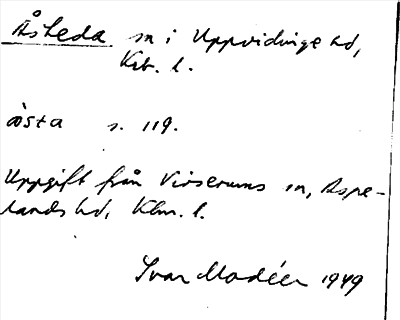 Åsheda sn i Uppvidinge hd,
Krb. l.
åsta s. 119.
Uppgift från Virserums sn, Aspe-
lands hd, Klm. l.
Ivar Modéer 1949